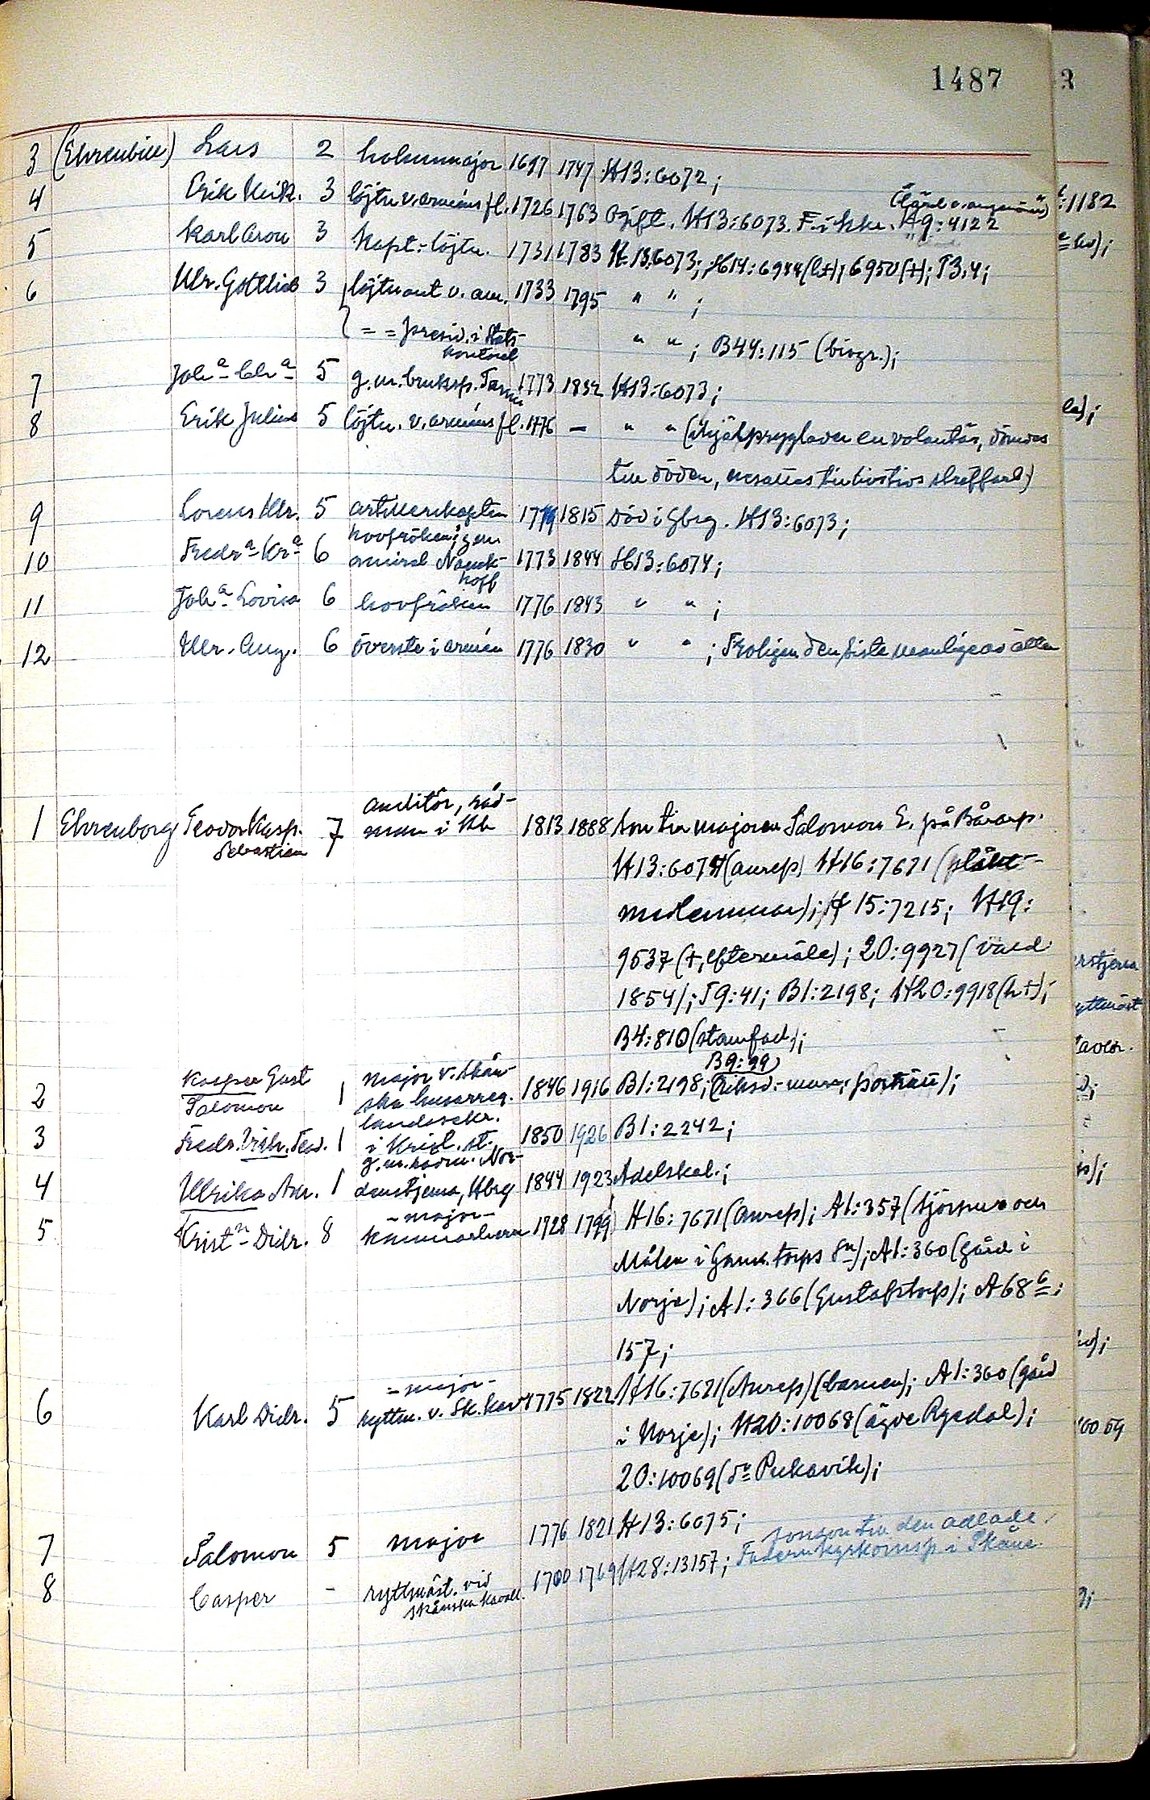 1487
3 (Ehrenbill) Lars 2 holmmajor 1697 1747 H13:6072;
4 Erik Krik. 3 löjtn. v. arméns fl. 1726 1763 Ogift. H13:6073. F. i Kkr. H9:4122
5 Karl Aron 3 Kapt.-löjtn. 1731 1783 H.13:6073; H14:6944(h+); 6950(+); J3:4;
6 Ulr. Gottlieb 3 löjtnant v. am. 1733 1795 " " ;
= = presid. i Stats-
kontoret " " ; B44:115 (biogr.);
7 Joha Chra 5 g.m. bruksp. 1773 1832 H13:6073;
8 Erik Julius 5 löjtn. v. arméns fl. 1776 — " " (ihjälpryglade en volontär, dömdes
till döden, straffarb.)
9 Lorens Ulr. 5 artillerikapten 1779 1815 död i Gbrg. H13:6073;
10 Fredra Kra 6 hovfröken; gm
amiral Nauck-
hoff 1773 1844 H13:6074;
11 Joha Lovisa 6 hovfröken 1776 1843 " " ;
12 Ulr. Aug. 6 överste i armén 1776 1830 " " ; Troligen den siste manlige av ätten
1 Ehrenborg Teodor Kasp.
Sebastian 7 auditör, råd-
man i Kh 1813 1888 Son till majoren Salomon E. på Bårarp.
H13:6074 (Anrep) H16:7671 (släkt-
medlemmar); H15:7215; H19:
9537 (+, eftermäle); 20:9927 (vald
1854); J9:41; B1:2198; H20:9918 (h+);
B4:810 (stamfad.);
2 Kasper Gust
Salomon 1 major v. Skån-
ska husarreg. 1846 1916 B1:2198; B9:99 (Riksd.-man; porträtt);
3 Fredr. Vilh. Teod. 1 landssekr.
i Krist. st. 1850 1926 B1:2242;
4 Ulrika Am. 1 g.m. kodm. Nor-
denstjerna, Hbrg 1844 1923 Adelskal.;
5 Kristn Didr. 8 -major-
kammarherre 1728 1799 H16:7671 (Anrep); A1:357 (Sjörup och
Målen i Gam. torps sn); A1:360 (gård i
Norje); A1:366 (Gustafstorp); A68c:
157;
6 Karl Didr. 5 -major-
ryttm. v. Sk. kav. 1775 1822 H16:7671 (Anrep) (barnen); A1:360 (gård
i Norje); H20:10068 (ägde Rysdal);
20:10069 (dn Pukavik);
7 Salomon 5 major 1776 1821 H13:6075;
8 Casper - ryttmäst. vid
skånska kavall. 1700 1769 H28:13157; sonson till den adlade.
Fadern kyrkoinsp. i Skåne